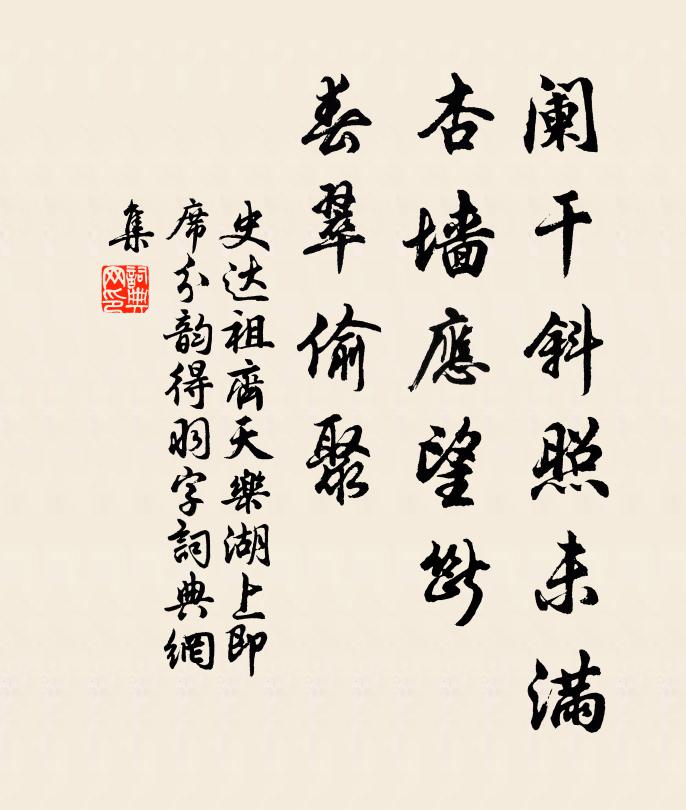 阑干斜照未满
杏墙應望断
春翠偷聚
史达祖齊天樂湖上即
席分韵得羽字詞典網
集
詞典网印